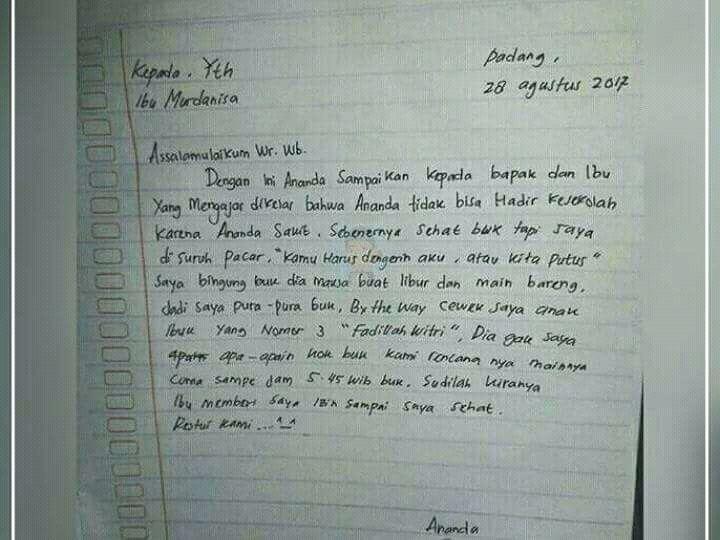 Padang,
Kepada. Yth
28 agustus 2017
Ibu Murdanisa
Assalamulaikum Wr. Wb.
Dengan Ini Ananda Sampaikan Kepada bapak dan Ibu
Yang Mengajar dikelas bahwa Ananda tidak bisa Hadir Kesekolah
Karena Ananda Sakit. Sebenernya Sehat buk tapi saya
di suruh pacar, "Kamu Harus dengerin aku, atau Kita Putus"
Saya bingung buk dia maksa buat libur dan main bareng,
Jadi Saya pura-pura buk, By the way Cewek Saya anak
Ibuk Yang Nomer 3 "Fadillah Witri", Dia gak saya
apa-apain kok buk kami rencana nya mainnya
Cuma sampe Jam 5.45 Wib buk. Sudilah kiranya
Ibu memberi Saya Izin Sampai Saya Sehat.
Restui Kami ...^_^
Ananda